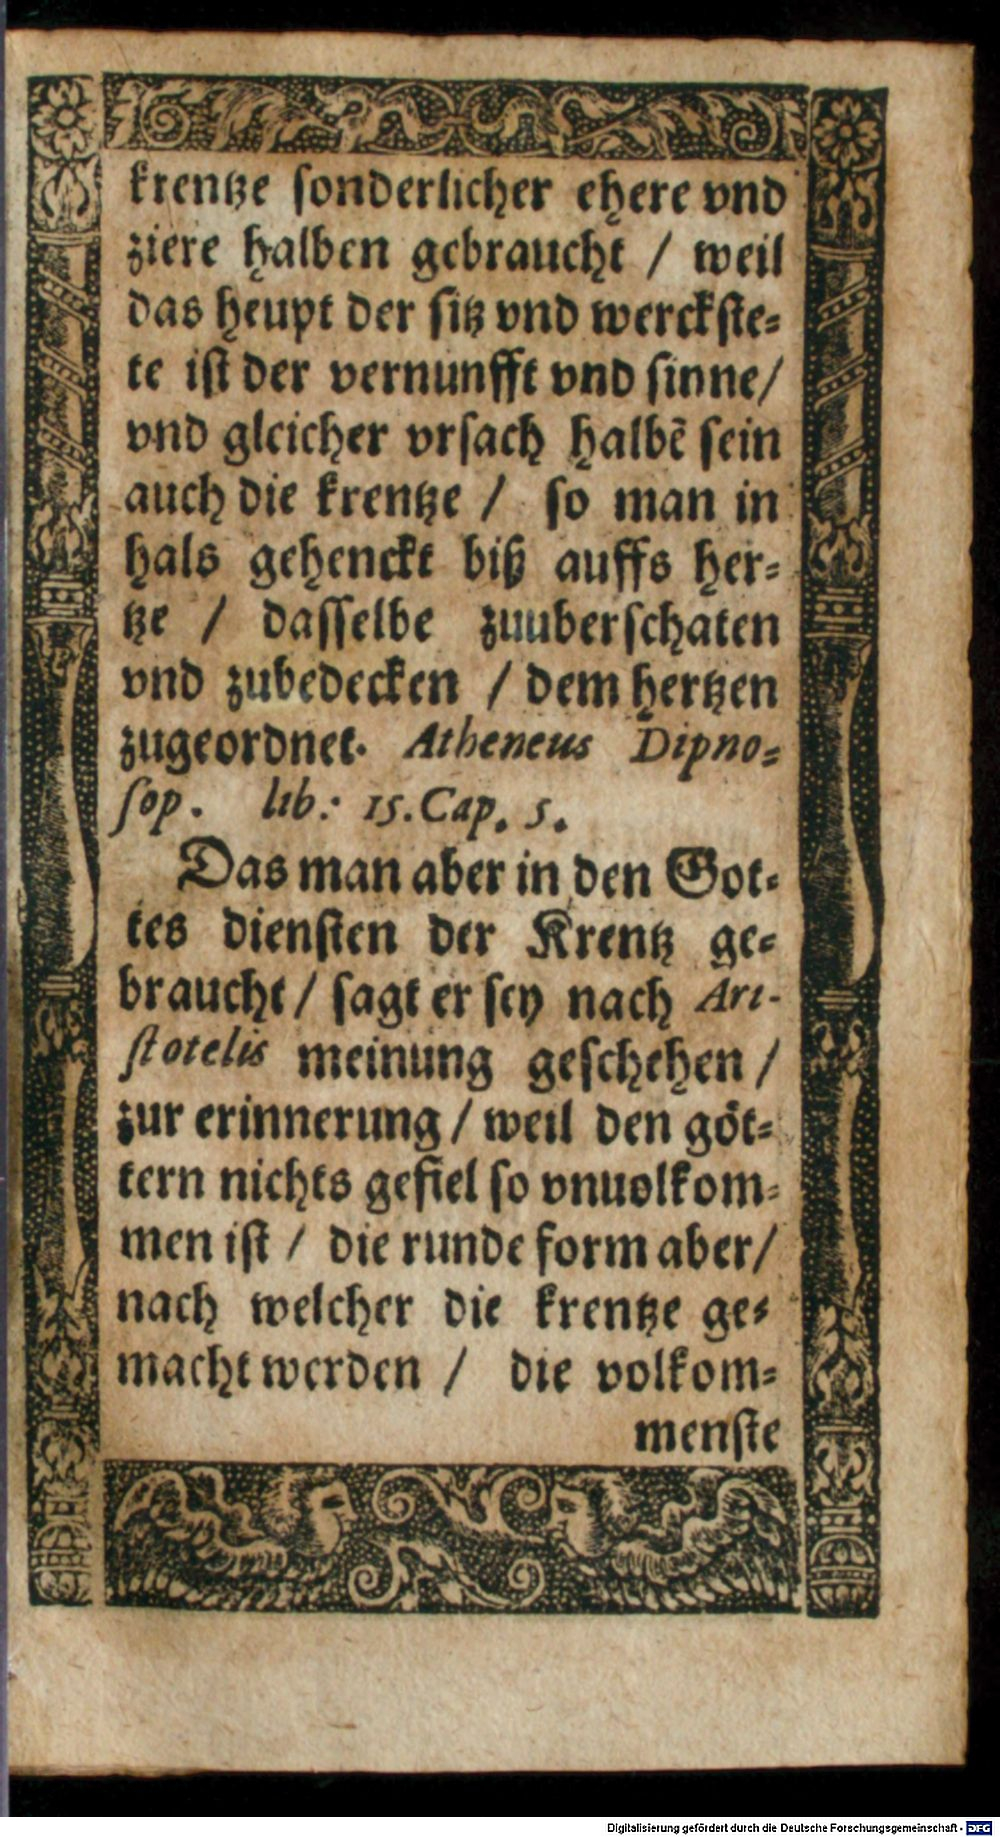 krentze ſonderlicher ehere vnd
ziere halben gebraucht / weil
das heupt der ſitz vnd werckſte⸗
te iſt der vernunfft vnd ſinne/
vnd gleicher vrſach halbē ſein
auch die krentze / ſo man in
hals gehenckt biß auffs her⸗
tze / daſſelbe zuuberſchaten
vnd zubedecken / dem hertzen
zugeordnet. Atheneus Dipno⸗
ſop. lib: 15. Cap. 5.
Das man aber in den Got⸗
tes dienſten der Krentz ge⸗
braucht / ſagt er ſey nach Ari-
ſtotelis meinung geſchehen /
zur erinnerung / weil den göt⸗
tern nichts gefiel ſo vnuolkom⸗
men iſt / die runde form aber/
nach welcher die krentze ge⸗
macht werden / die volkom⸗
menſte
Digitalisierung gefördert durch die Deutsche Forschungsgemeinschaft - DFG